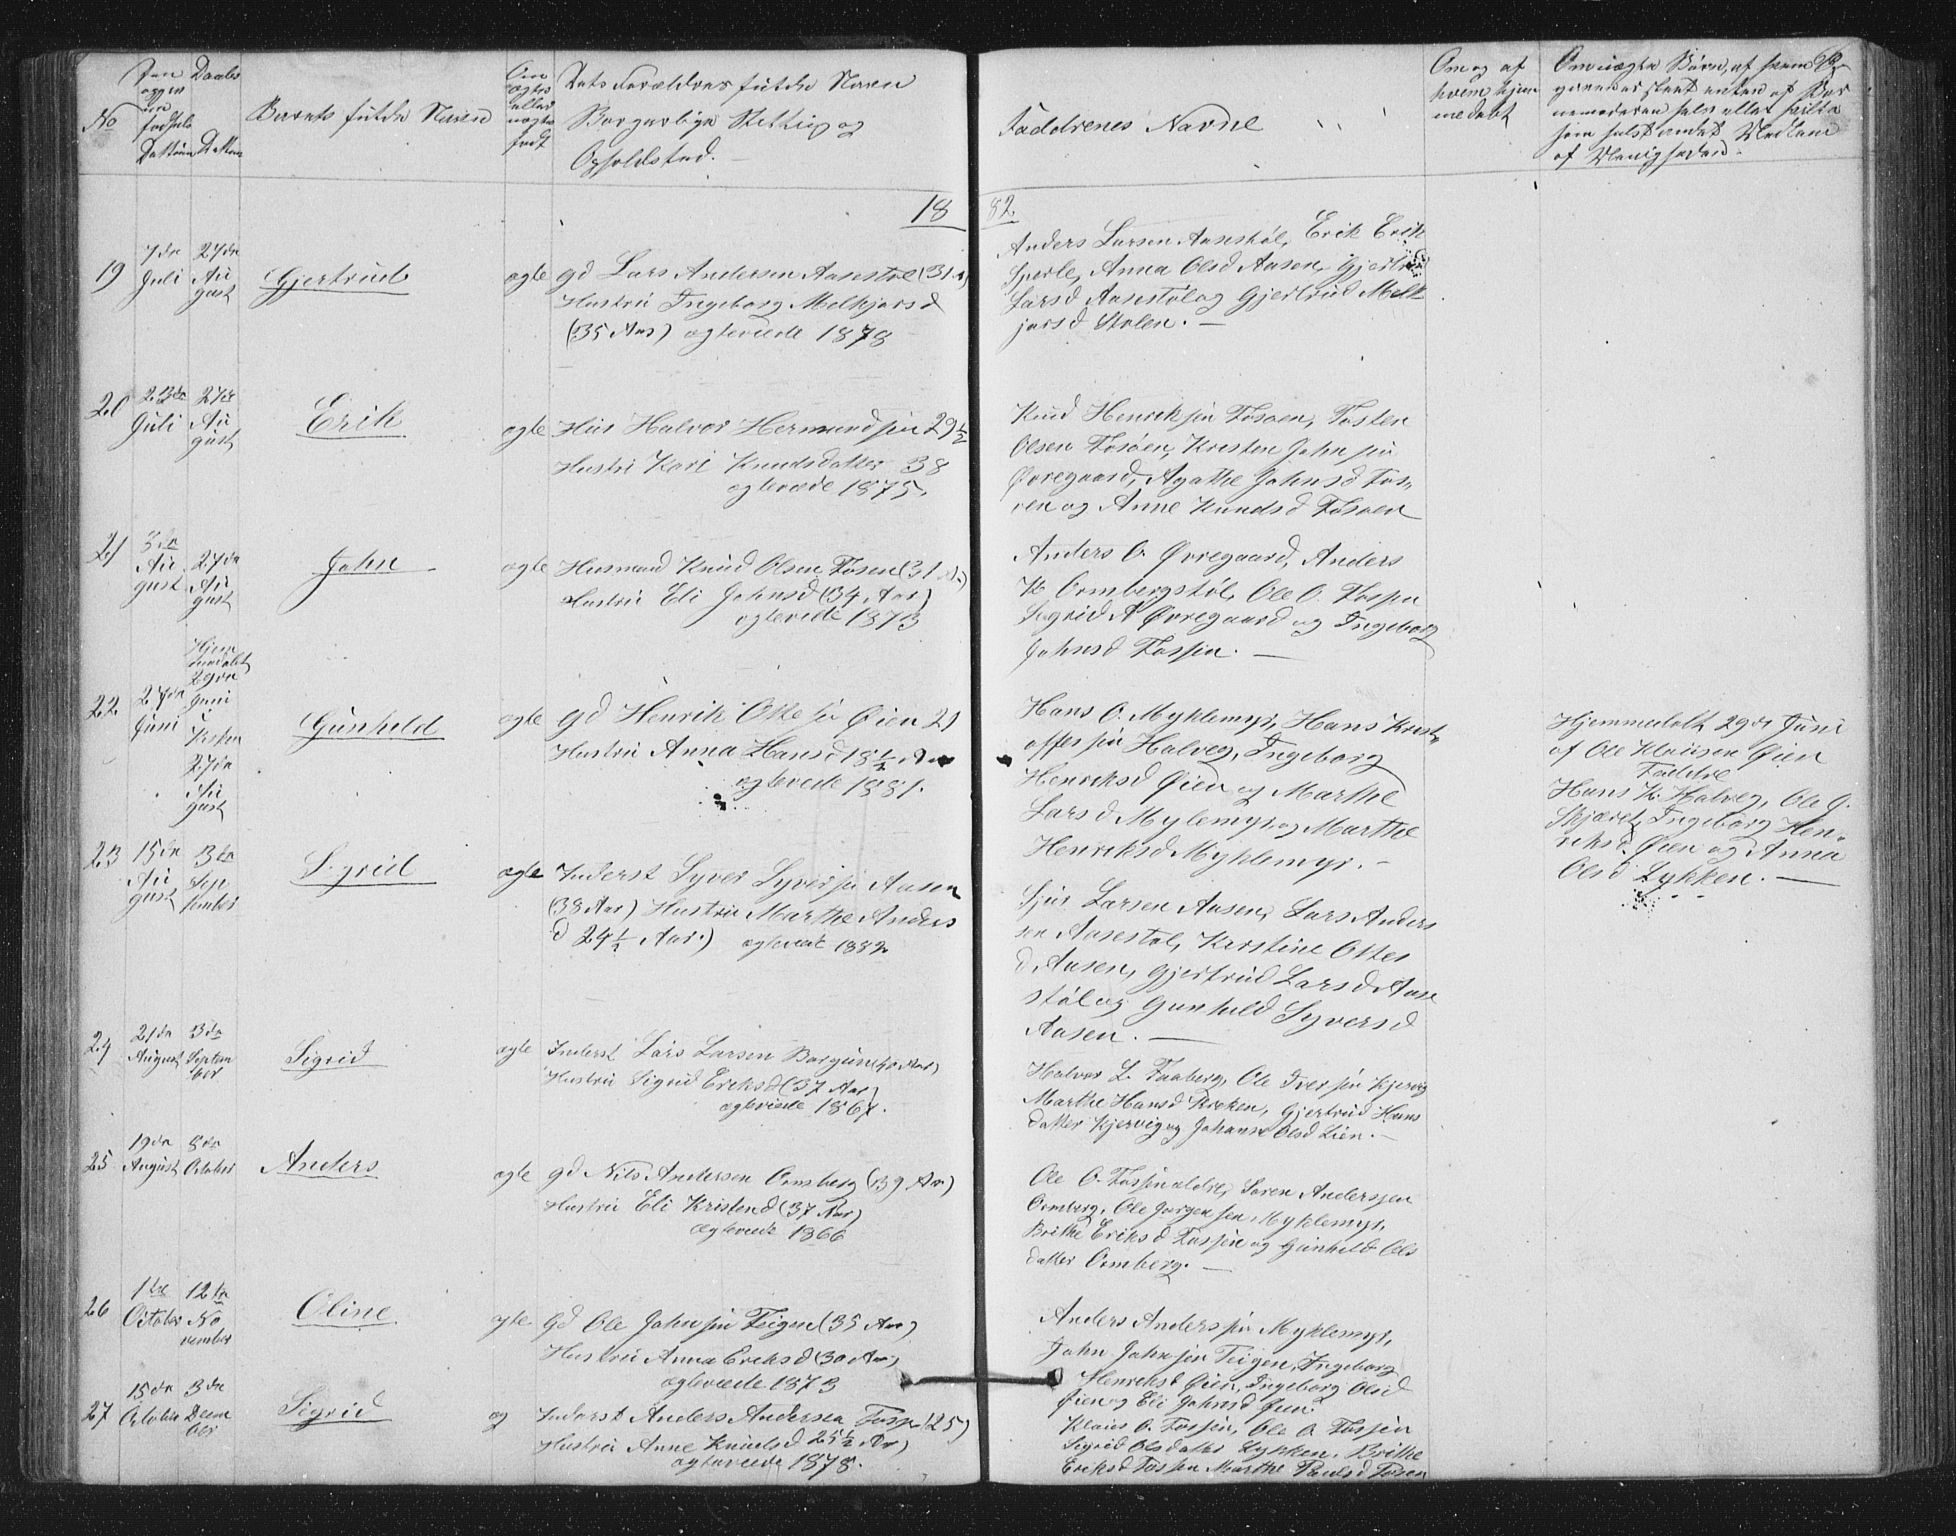 No
Daabs
Datum
Barnets fulde Navn
Dets Forældres fulde Navn
Borgerlige Stilling og
Opholdsted.
Faddrenes Navne
Om og af
hvem hjem
medøbt
1882
19
7de
Juli
27de
Au
gust
Gjertrud
ægte
Gd Lars Andersen Aasestøl (31 A)
Hustru Ingeborg Melkjorsd
(35 Aar) ægteviede 1878
Anders Larsen Aasestøl, Erik Erik
Anna Olsd Aasen, Gjertrud
Larsd Aasestøl og Gjertrud Melk
jorsd Stølen. —
20
23de
Juli
27de
Au
gust
Erik
ægte
Hus Halvor Hermundsen 29½
Hustru Kari Knudsdatter 38
ægteviede 1875.
Knud Henriksen Fosøen, Tosten
Olsen Fosøen, Kristen Johnsen
Øvregaard, Agathe Johnsd Fos„
øen og Anne Knudsd Fosøen
21
3de
Au
gust
27de
Au
gust
John
ægte
Husmand Knud Olsen Fosen (31 A.)
Hustru Eli Johnsd (34 Aar)
ægteviede 1873
Anders O. Øvregaard, Anders
K Ormbergstøl, Ole O. Fossen
Sigrid A Øvregaard og Ingeborg
Johnsd Fossen. —
22
27de
Juni
Hjem
medøbt
29de
Juni
Kirken
27de
Au
gust
Gunhild
ægte
Gd Henrik Ottesen Øien 21
Hustru Anna Hansd 18½ Aar
ægteviede 1881.
Hans O. Myklemyr, Hans Krist„
offersen Halveg, Ingeborg
Henriksd Øien og Marthe
Larsd Myklemyr og Marthe
Henriksd Myklemyr. —
Hjemmedøbt 29de Juni
af Ole Klausen Øien
Faddre
Hans K. Halveg, Ole O.
Skjæret, Ingeborg Hen„
riksd. Øien og Anna
Olsd Lykken. —
23
15de
Au
gust
3de
Sep
tember
Sigrid
ægte
Inderst Syver Syversen Aasen
(38 Aar) Hustru Marthe Anders
d 24½ Aar.) ægteviede 1882
Larsen Aasen, Lars Anders
sen Aasestøl, Kirstine Ottes
d. Aasen, Gjertrud Larsd Aase
støl og Gunhild Syversd
Aasen. —
24
21de
August
3de
Septem
ber
Sigrid
ægte
Inderst Lars Larsen Borgun (40 Aar)
Hustru Sigrid Eriksd (37 Aar)
ægteviede 1867.
Halvor L. Faaberg, Ole Iversen Kjervig
Marthe Hansd Kroken, Gjertrud Hans
datter Kjervig og Johanne Olsd Lien. —
25
19de
August
8de
October
Anders
ægte
Gd Nils Andersen Ormberg (39 Aar)
Hustru Eli Kristend (37 Aar)
ægteviede 1866
Ole O. Fossen ældre, Søren Anderssen
Ormberg, Ole Jørgensen Myklemyr,
Brithe Eriksd Fossen og Gunhild Ols
datter Ormberg. —
26
1ste
October
12te
No
vember
Oline
ægte
Gd Ole Johnsen Teigen (35 Aar)
Hustru Anna Eriksd (30 Aar)
ægteviede 1873
Anders Andersen Myklemyr,
John Johnsen Teigen, Ingeborg
Henriksd Øien, Ingeborg Olsd
Øien og Eli Johnsd Øien
27
15de
October
3de
Decem
ber
Sigrid
Inderst Anders Andersen Fossen (25)
Hustru Anne Knudsd 25½ Aar)
ægteviede 1878.
Klaus O. Fossen, Ole O. Fossen
Sigrid Olsdatter Lykken, Brithe
Eriksd Fossen Marthe Paulsd Fosen